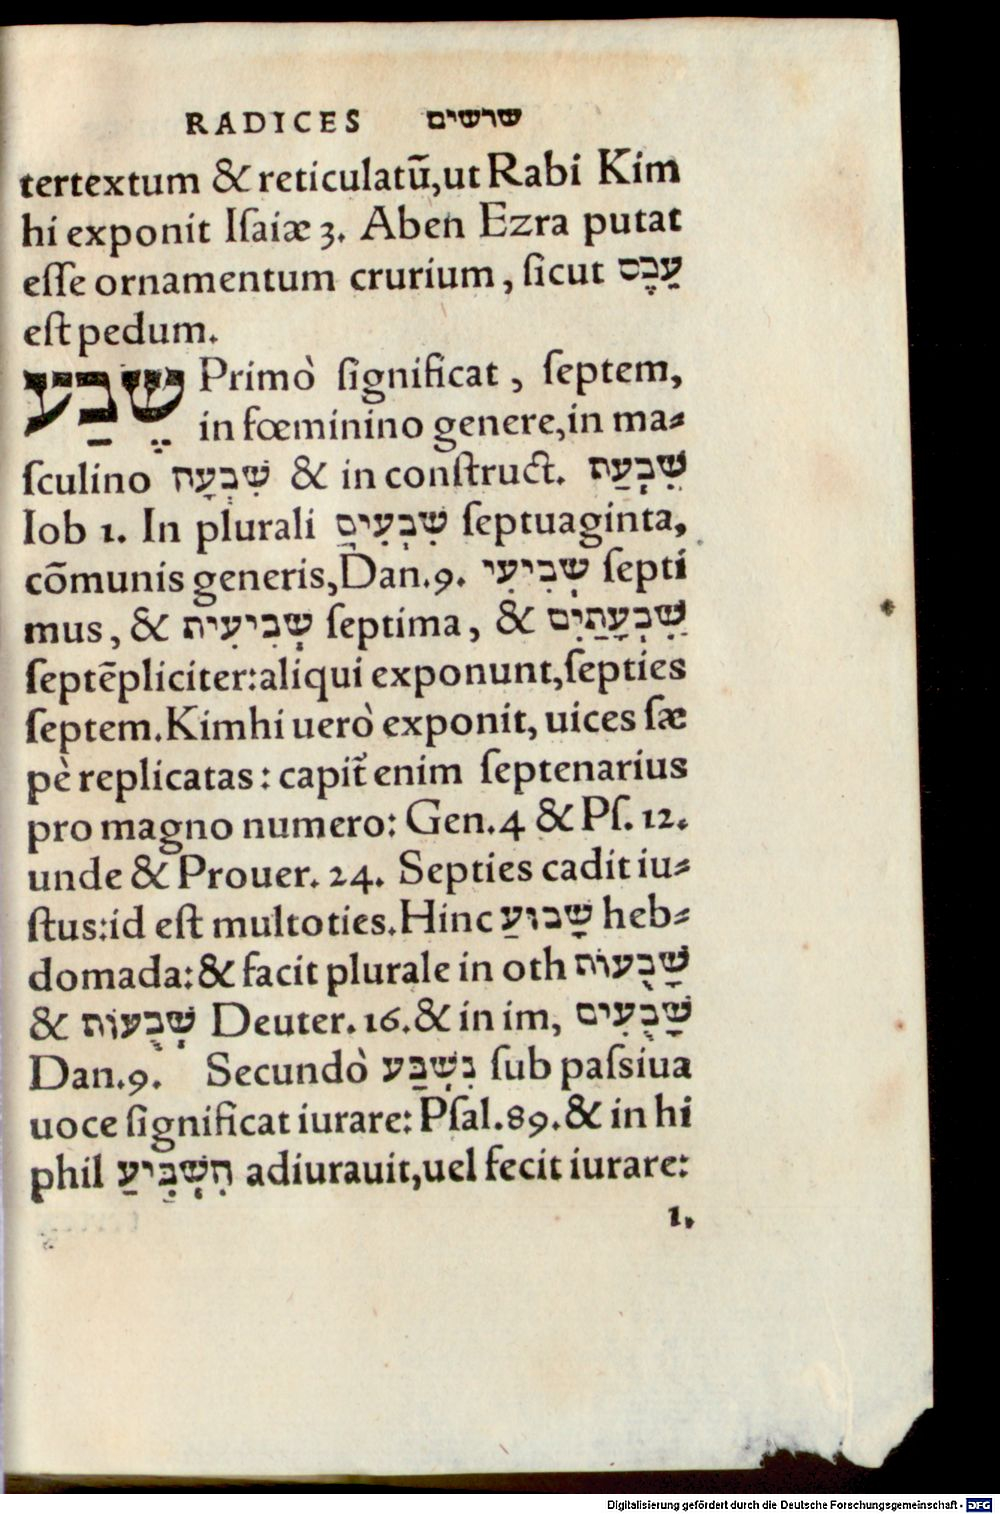 RADICES שרשים
tertextum & reticulatū,ut Rabi Kim
hi exponit Iſaiæ 3. Aben Ezra putat
eſſe ornamentum crurium, ſicut עַבָּס
eſt pedum.
שֶׁבַע Primò ſignificat, ſeptem,
in fœminino genere,in ma⸗
ſculino שִׁבְעָה & in conſtruct. שִׁבְעַת
Iob 1. In plurali שִׁבְעִים ſeptuaginta,
cōmunis generis,Dan.9. שְׁבִיעִי ſepti
mus, & שְׁבִיעִית ſeptima, & שִׁבְעָתַיִם
ſeptēpliciter:aliqui exponunt,ſepties
ſeptem.Kimhi uerò exponit, uices ſæ
pè replicatas: capit᷑ enim ſeptenarius
pro magno numero: Gen.4 & Pſ. 12.
unde & Prouer. 24. Septies cadit iu⸗
ſtus:id eſt multoties.Hinc שָׁבוּעַ heb⸗
domada:& facit plurale in oth שָׁבֻעוֹת
& שְׁבֻעוֹת Deuter. 16.& in im, שָׁבֻעִים
Dan.9. Secundò נִשְׁבַּע ſub paſsiua
uoce ſignificat iurare: Pſal.89.& in hi
phil הִשְׁבִּיעַ adiurauit,uel fecit iurare:
1.
Digitalisierung gefördert durch die Deutsche Forschungsgemeinschaft - DFG